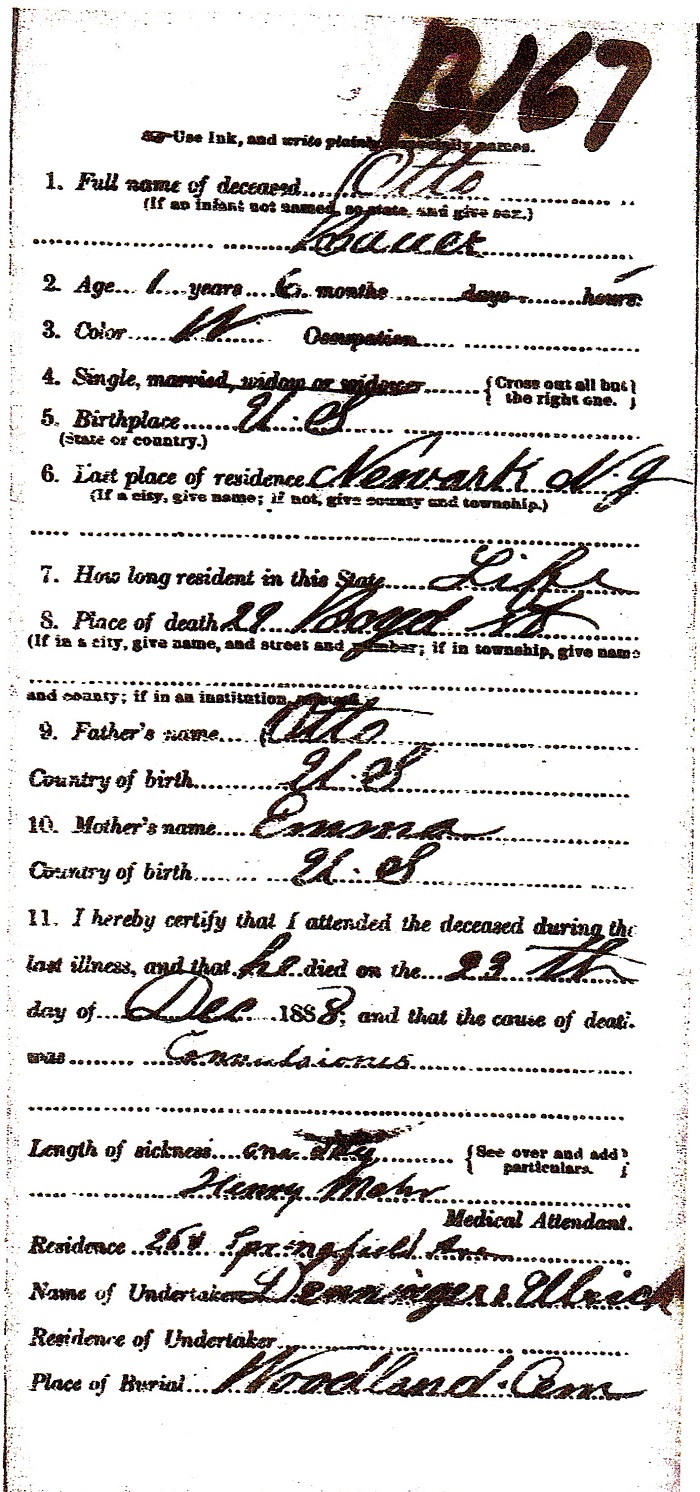 B167
☞Use Ink, and write plainly especially names.
1. Full name of deceased Otto
(If an infant not named, so state, and give sex.)
Bauer
2. Age 1 years 6 months days hours
3. Color W Occupation
4. Single, married, widow or widower {Cross out all but the right one.}
5. Birthplace U.S
(State or country.)
6. Last place of residence Newark N.J
(If a city, give name; if not, give county and township.)
7. How long resident in this State Life
8. Place of death 29 Boyd St
(If in a city, give name, and street and number; if in township, give name
and county; if in an institution,
9. Father's name Otto
Country of birth U.S
10. Mother's name Emma
Country of birth U.S
11. I hereby certify that I attended the deceased during the
last illness, and that he died on the 23 th
day of Dec 1888; and that the cause of death
was Convulsiones
Length of sickness one day {See over and add particulars.}
Henry Mohr
Medical Attendant.
Residence 264 Springfield Ave
Name of Undertaker Denninger & Ulrich
Residence of Undertaker
Place of Burial Woodland Cem